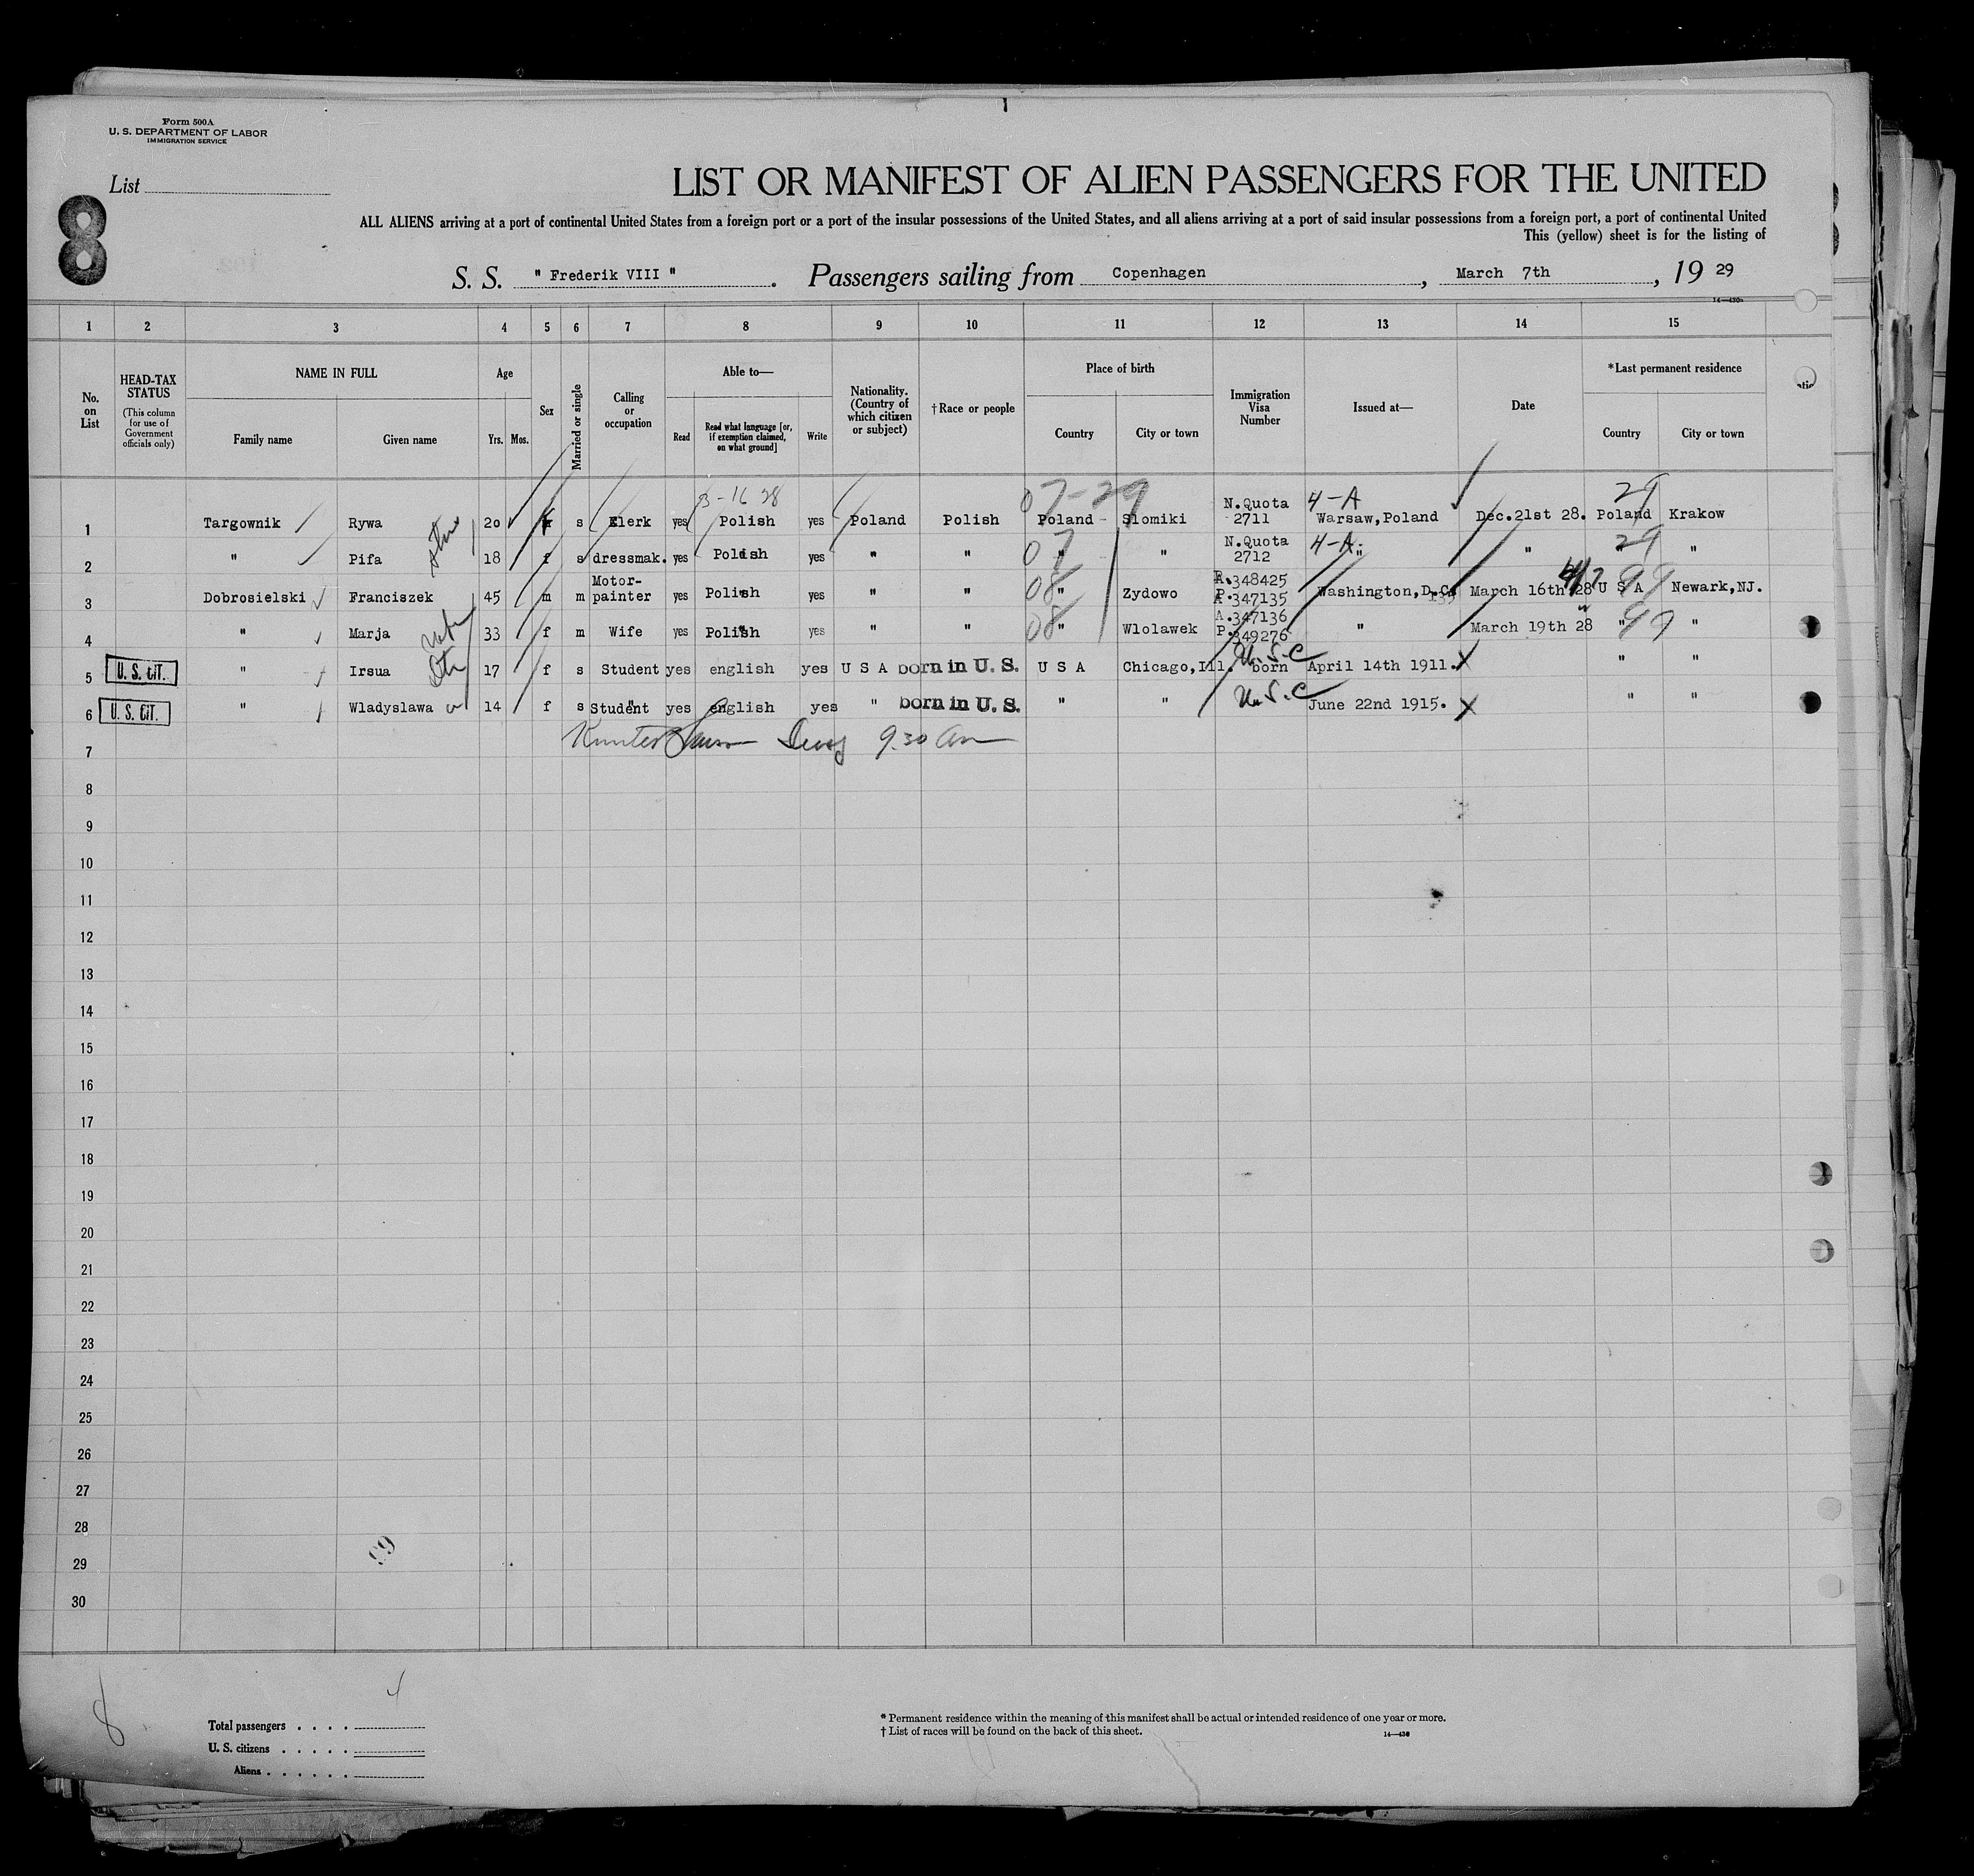 Form 500A
U. S. DEPARTMENT OF LABOR
IMMIGRATION SERVICE
List
8
LIST OR MANIFEST OF ALIEN PASSENGERS FOR THE UNITED
ALL ALIENS arriving at a port of continental United States from a foreign port or a port of the insular possessions of the United States, and all aliens arriving at a port of said insular possessions from a foreign port, a port of continental United
This (yellow) sheet is for the listing of
S. S. " Frederik VIII " . Passengers sailing from Copenhagen , March 7th , 19 29
1 2 3 4 5 6 7 8 9 10 11 12 13 14 15
No. on List
HEAD-TAX STATUS (This column for use of Government officials only)
NAME IN FULL
Family name Given name
Age
Yrs. Mos.
Sex
Married or single
Calling or occupation
Able to—
Read Read what language [or, if exemption claimed, on what ground] Write
Nationality. (Country of which citizen or subject)
† Race or people
Place of birth
Country City or town
Immigration Visa Number
Issued at—
Date
*Last permanent residence
Country City or town
3-16 28 07-29 4-A 29
1 Targownik Rywa 20 s Clerk yes Polish yes Poland Polish Poland Slomiki N.Quota 2711 Warsaw,Poland Dec.21st 28. Poland Krakow
2 " Pifa 18 f s dressmak. yes Polish yes " " 07 " " N.Quota 2712 4-A " " 29 " "
3 Dobrosielski Franciszek 45 m m Motor-painter yes Polish yes " " 08 " Zydowo R.348425 P.347135 Washington,D.C. March 16th 28 U S A 99 Newark,NJ.
4 " Marja 33 f m Wife yes Polish yes " " 08 " Wlolawek A.347136 P.349276 " March 19th 28 " 99 "
5 U. S. CIT. " Irsua 17 f s Student yes english yes U S A born in U. S. U S A Chicago,Ill. U.S.C born April 14th 1911. X " "
6 U. S. CIT. " Wladyslawa 14 f s Student yes english yes " born in U. S. " " U.S.C June 22nd 1915. X " "
9.30 am
7
8
9
10
11
12
13
14
15
16
17
18
19
20
21
22
23
24
25
26
27
28
29
30
8
Total passengers . . . .
U. S. citizens . . . . .
Aliens . . . . . .
* Permanent residence within the meaning of this manifest shall be actual or intended residence of one year or more.
† List of races will be found on the back of this sheet.
14—430